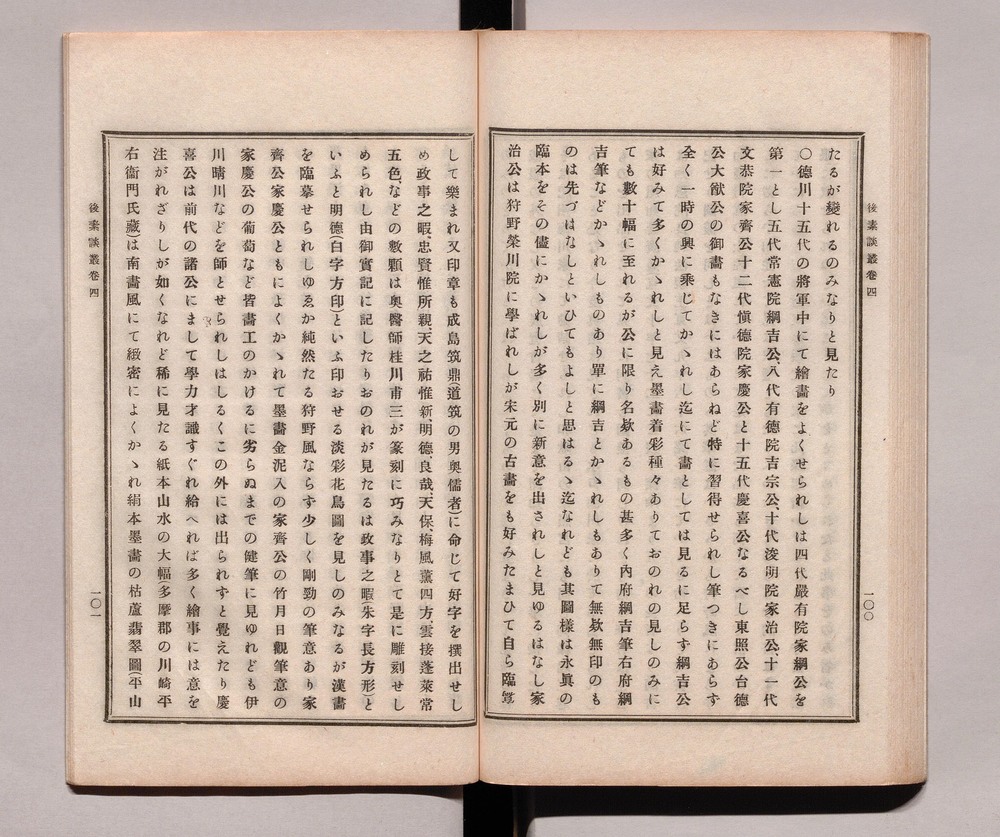 後素談叢卷四
一〇〇
たるが變れるのみなりと見たり
〇德川十五代の將軍中にて繪畫をよくせられしは四代嚴有院家綱公を
第一とし五代常憲院綱吉公、八代有德院吉宗公、十代浚明院家治公、十一代
文恭院家齊公十二代愼德院家慶公と十五代慶喜公なるべし東照公台德
公大猷公の御畫もなきにはあらねど特に習得せられし筆つきにあらず
全く一時の興に乘じてかゝれし迄にて畫としては見るに足らず綱吉公
は好みて多くかゝれしと見え墨畫着彩種々ありておのれの見しのみに
ても數十幅に至れるが公に限り名欵あるもの甚多く內府綱吉筆右府綱
吉筆などかゝれしものあり單に綱吉とかゝれしもありて無欵無印のも
のは先づはなしといひてもよしと思はるゝ迄なれども其圖樣は永眞の
臨本をその儘にかゝれしが多く別に新意を出されしと見ゆるはなし家
治公は狩野榮川院に學ばれしが宋元の古畫をも好みたまひて自ら臨寫
して樂まれ又印章も成島筑鼎道筑の男奧儒者)に命じて好字を撰出せし
め政事之暇、忠賢惟所親、天之祐惟新明德、良哉、天保、梅風、薰四方、雲接蓬萊常
五色などの數顆は奧醫師桂川甫三が篆刻に巧みなりとて是に雕刻せし
められし由御實記に記したりおのれが見たるは政事之暇(朱字長方形)と
いふと明德(白字方印)といふ印おせる淡彩花鳥圖を見しのみなるが漢畫
を臨摹せられしゆゑか純然たる狩野風ならず少しく剛勁の筆意あり家
齊公家慶公ともによくかゝれて墨畫金泥入の家齊公の竹月日觀筆意の
家慶公の葡萄など皆畫工のかけるに劣らぬまでの健筆に見ゆれども伊
川晴川などを師とせられしはしるくこの外には出られずと覺えたり慶
喜公は前代の諸公にまして學力才識すぐれ給へれば多く繪事には意を
注がれざりしが如くなれど稀に見たる紙本山水の大幅(多摩郡の川崎平
右衞門氏藏)は南畫風にて緻密によくかゝれ絹本墨畫の枯蘆翡翠圖(平山
後素談叢卷四
一〇一